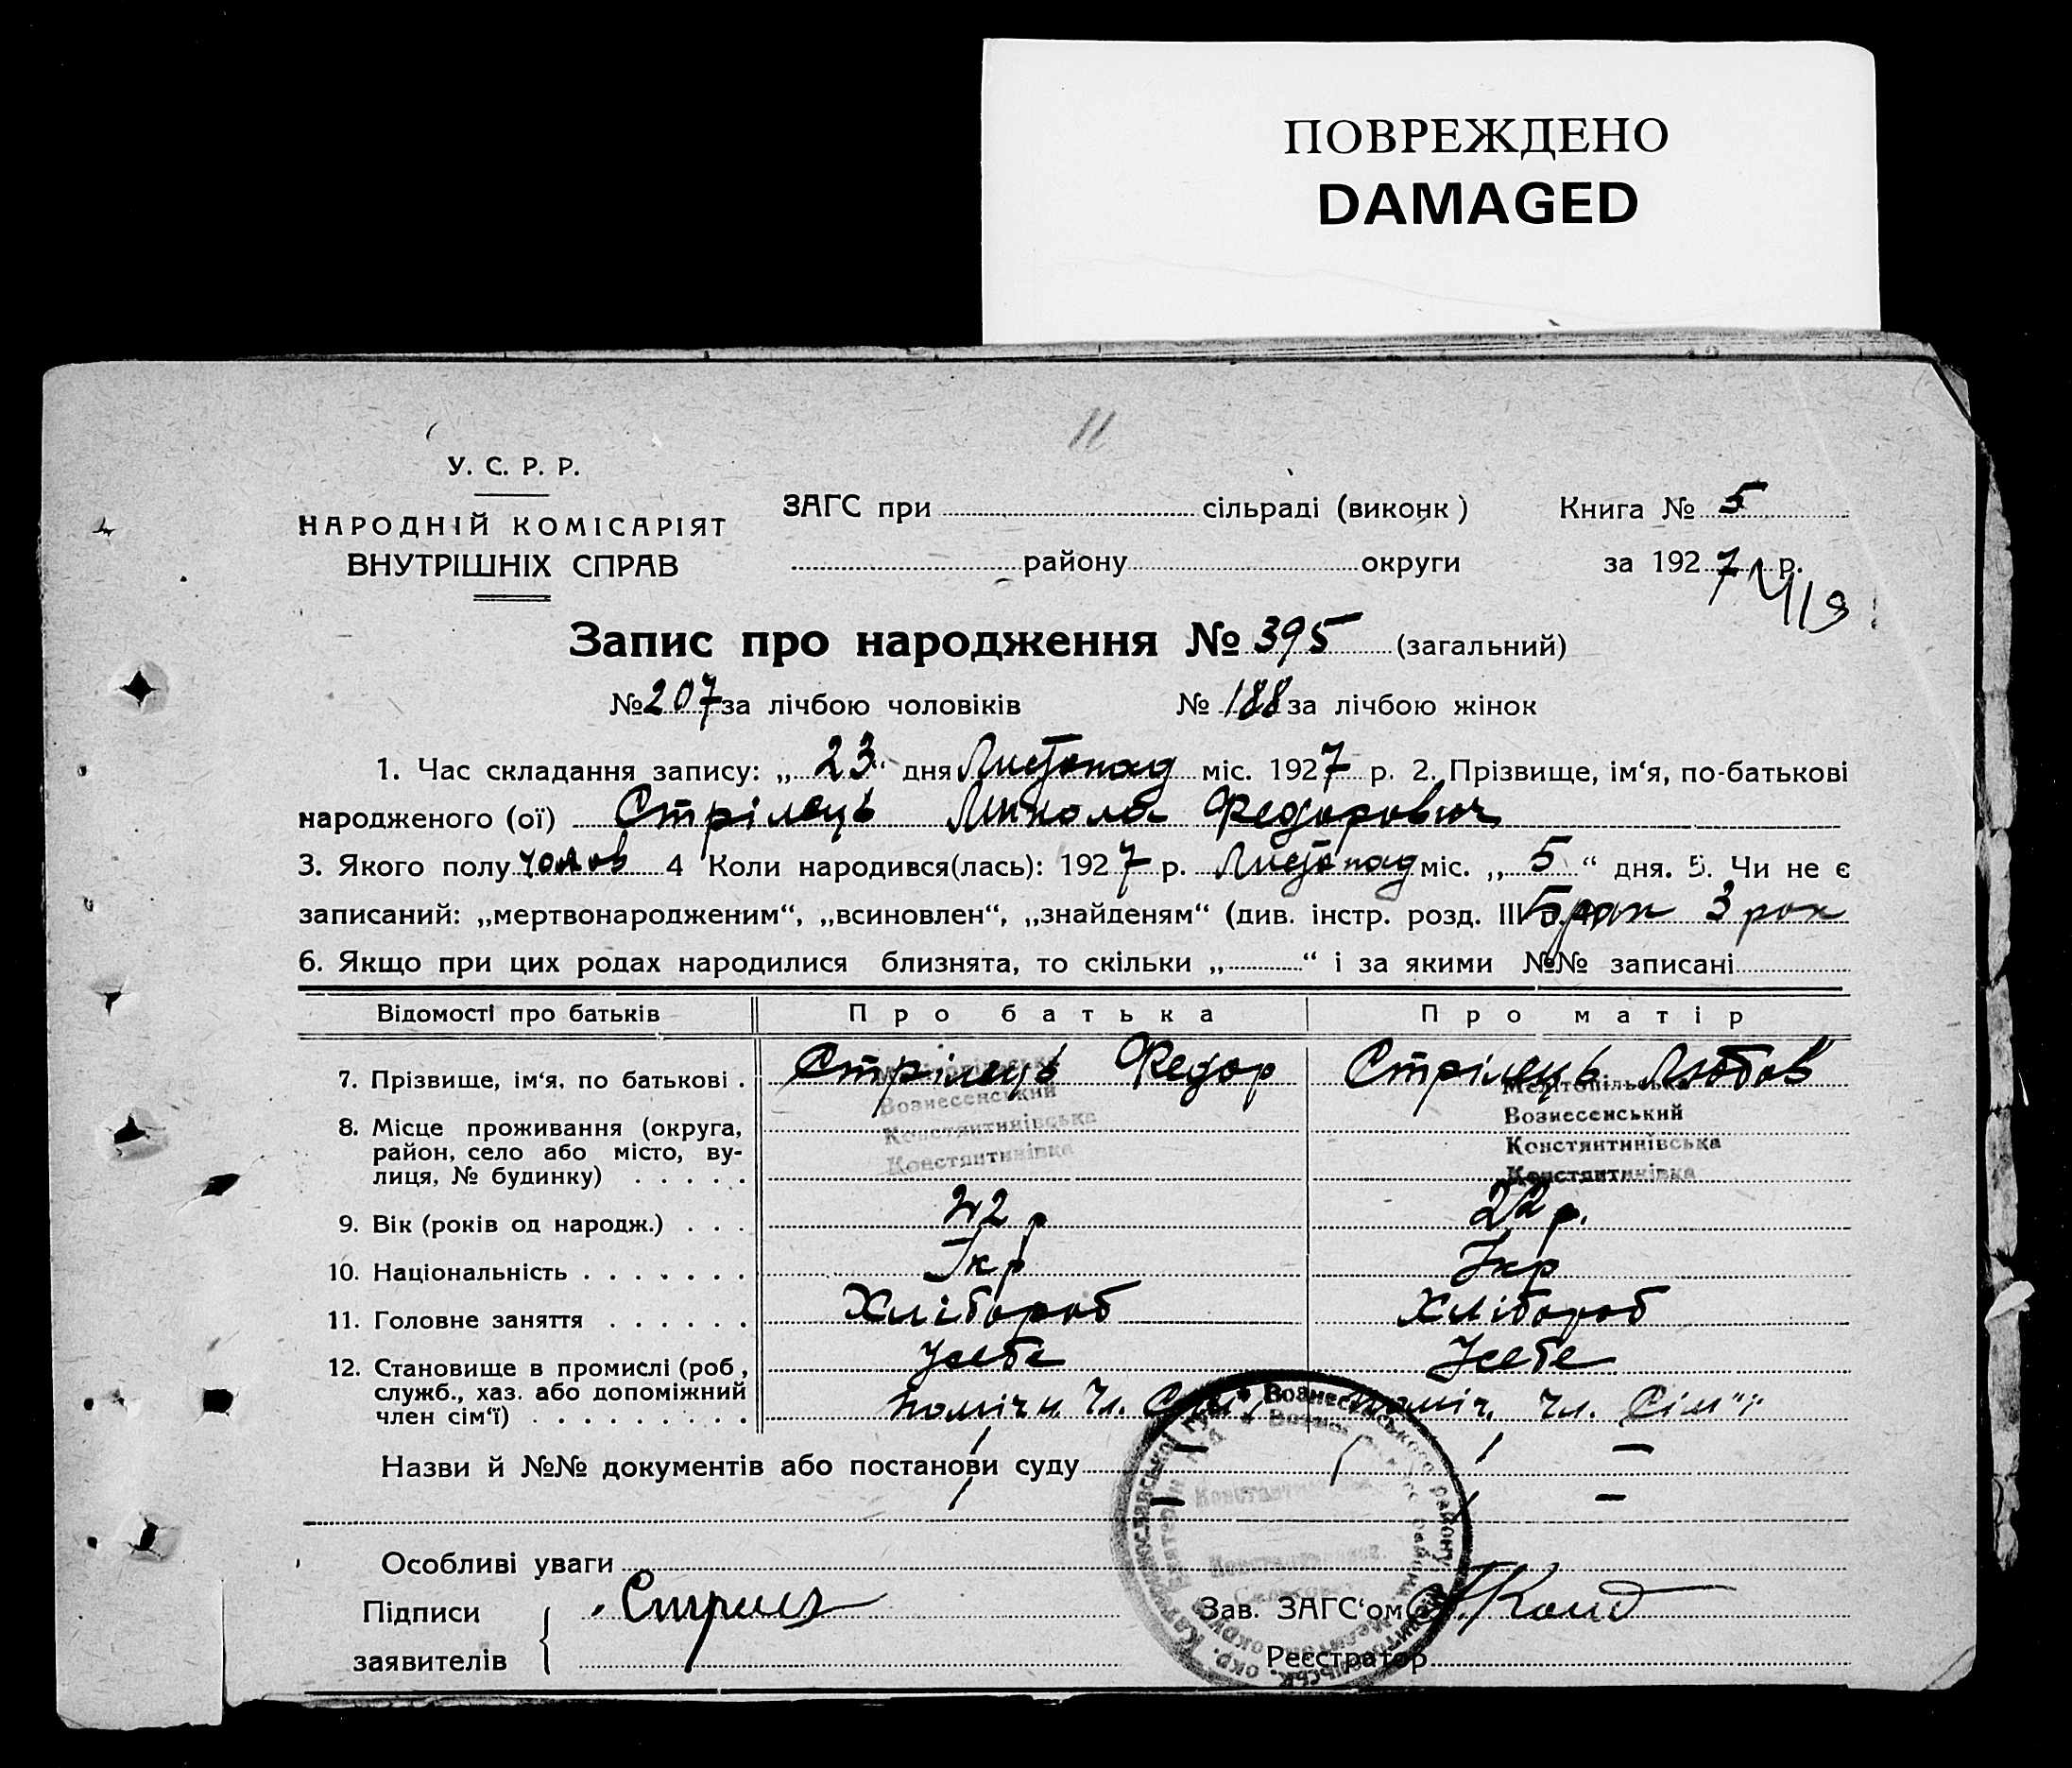 ПОВРЕЖДЕНО
DAMAGED
11
У. С. Р. Р.
НАРОДНІЙ КОМІСАРІЯТ
ВНУТРІШНІХ СПРАВ
ЗАГС при сільраді (виконк)
району округи
Книга № 5
за 1927 р.
Запис про народження № 395 (загальний)
№ 207 за лічбою чоловіків № 188 за лічбою жінок
1. Час складання запису: „23“ дня Листопад міс. 1927 р. 2. Прізвище, ім‘я, по-батькові
народженого (ої) Стрілець Микола Федорович
3. Якого полу чолов 4 Коли народився(лась): 1927 р. Листопад міс. „5“ дня. 5. Чи не є
записаний: „мертвонародженим“, „всиновлен“, „знайденям“ (див. інстр. розд. III 3
6. Якщо при цих родах народилися близнята, то скільки „ “ і за якими №№ записані
Відомості про батьків Про батька Про матір
7. Прізвище, ім‘я, по батькові . Стрілець Федор Стрілець Любов
8. Місце проживання (округа,
район, село або місто, ву-
лиця, № будинку) . . . . .
Вознесенський
Константинівська
Константинівка
Мелітопільська
Вознесенський
Константинівська
Константинівка
9. Вік (років од народж.) . . . 42 р 22 р.
10. Національність . . . . . . . Укр Укр
11. Головне заняття . . . . . . Хлібороб Хлібороб
12. Становище в промислі (роб, Усебе Усебе
служб., хаз. або допоміжний
член сім‘ї) . . . . . . . . . помічн. Чл. Сім'ї поміч. Чл. Сім'ї
Назви й №№ документів або постанови суду
Особливі уваги
Підписи
заявителів
Зав. ЗАГС‘ом
Реєстратор